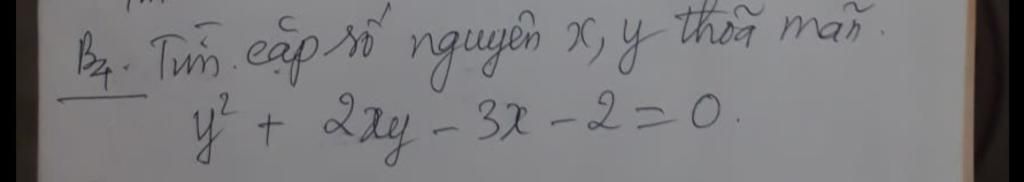 B4. Tìm cặp số nguyên x, y thoã mãn.
y² + 2xy - 3x - 2 = 0.